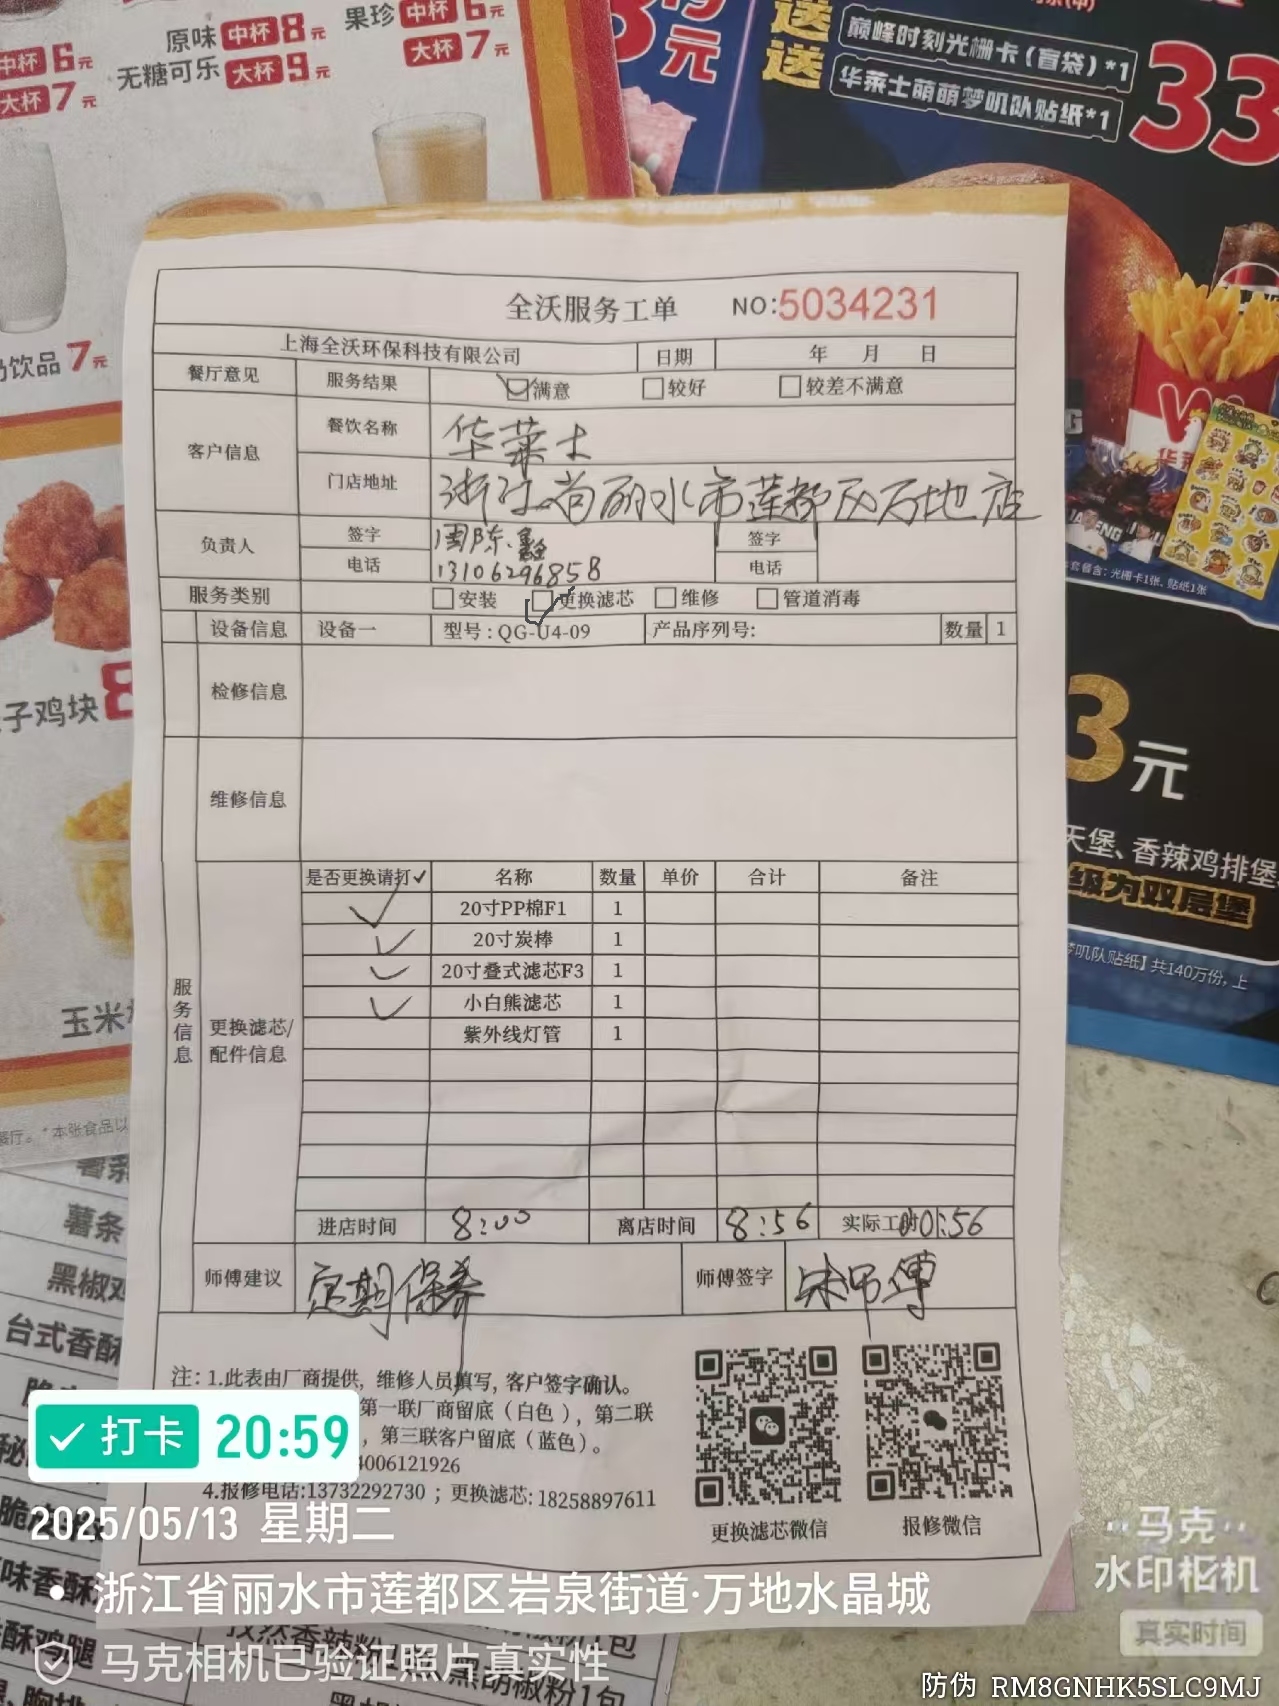 中杯6元
大杯7元
原味 中杯8元
无糖可乐 大杯9元
果珍 中杯6元
大杯7元
3元
送 巅峰时刻光栅卡(盲袋)*1
送 华莱士萌萌梦叽队贴纸*1
33
饮品7元
全沃服务工单 NO:5034231
上海全沃环保科技有限公司 日期 年 月 日
餐厅意见 服务结果 ☑满意 □较好 □较差不满意
客户信息 餐饮名称 华莱士
门店地址 浙江省丽水市莲都区万地店
负责人 签字 签字
电话 13106296858 电话
服务类别 □安装 ☑更换滤芯 □维修 □管道消毒
设备信息 设备一 型号:QG-U4-09 产品序列号: 数量 1
检修信息
维修信息
服务信息
更换滤芯/
配件信息
是否更换请打✓ 名称 数量 单价 合计 备注
✓ 20寸PP棉F1 1
✓ 20寸炭棒 1
✓ 20寸叠式滤芯F3 1
✓ 小白熊滤芯 1
紫外线灯管 1
进店时间 8:00 离店时间 8:56 实际工时 01:56
师傅建议 定期保养 师傅签字 宋师傅
注: 1.此表由厂商提供, 维修人员填写, 客户签字确认。
第一联厂商留底(白色), 第二联
, 第三联客户留底(蓝色)。
4006121926
4.报修电话:13732292730 ; 更换滤芯: 18258897611
更换滤芯微信 报修微信
子鸡块8
玉米
餐厅。*本张食品以
薯条
黑椒鸡
台式香酥
套餐含: 光栅卡1张, 贴纸1张
3元
天堡、香辣鸡排堡
级为双层堡
梦叽队贴纸】共140万份, 上
打卡 20:59
2025/05/13 星期二
浙江省丽水市莲都区岩泉街道·万地水晶城
马克相机已验证照片真实性
马克
水印相机
真实时间
防伪 RM8GNHK5SLC9MJ
味香酥
酥鸡腿
黑胡椒粉1包